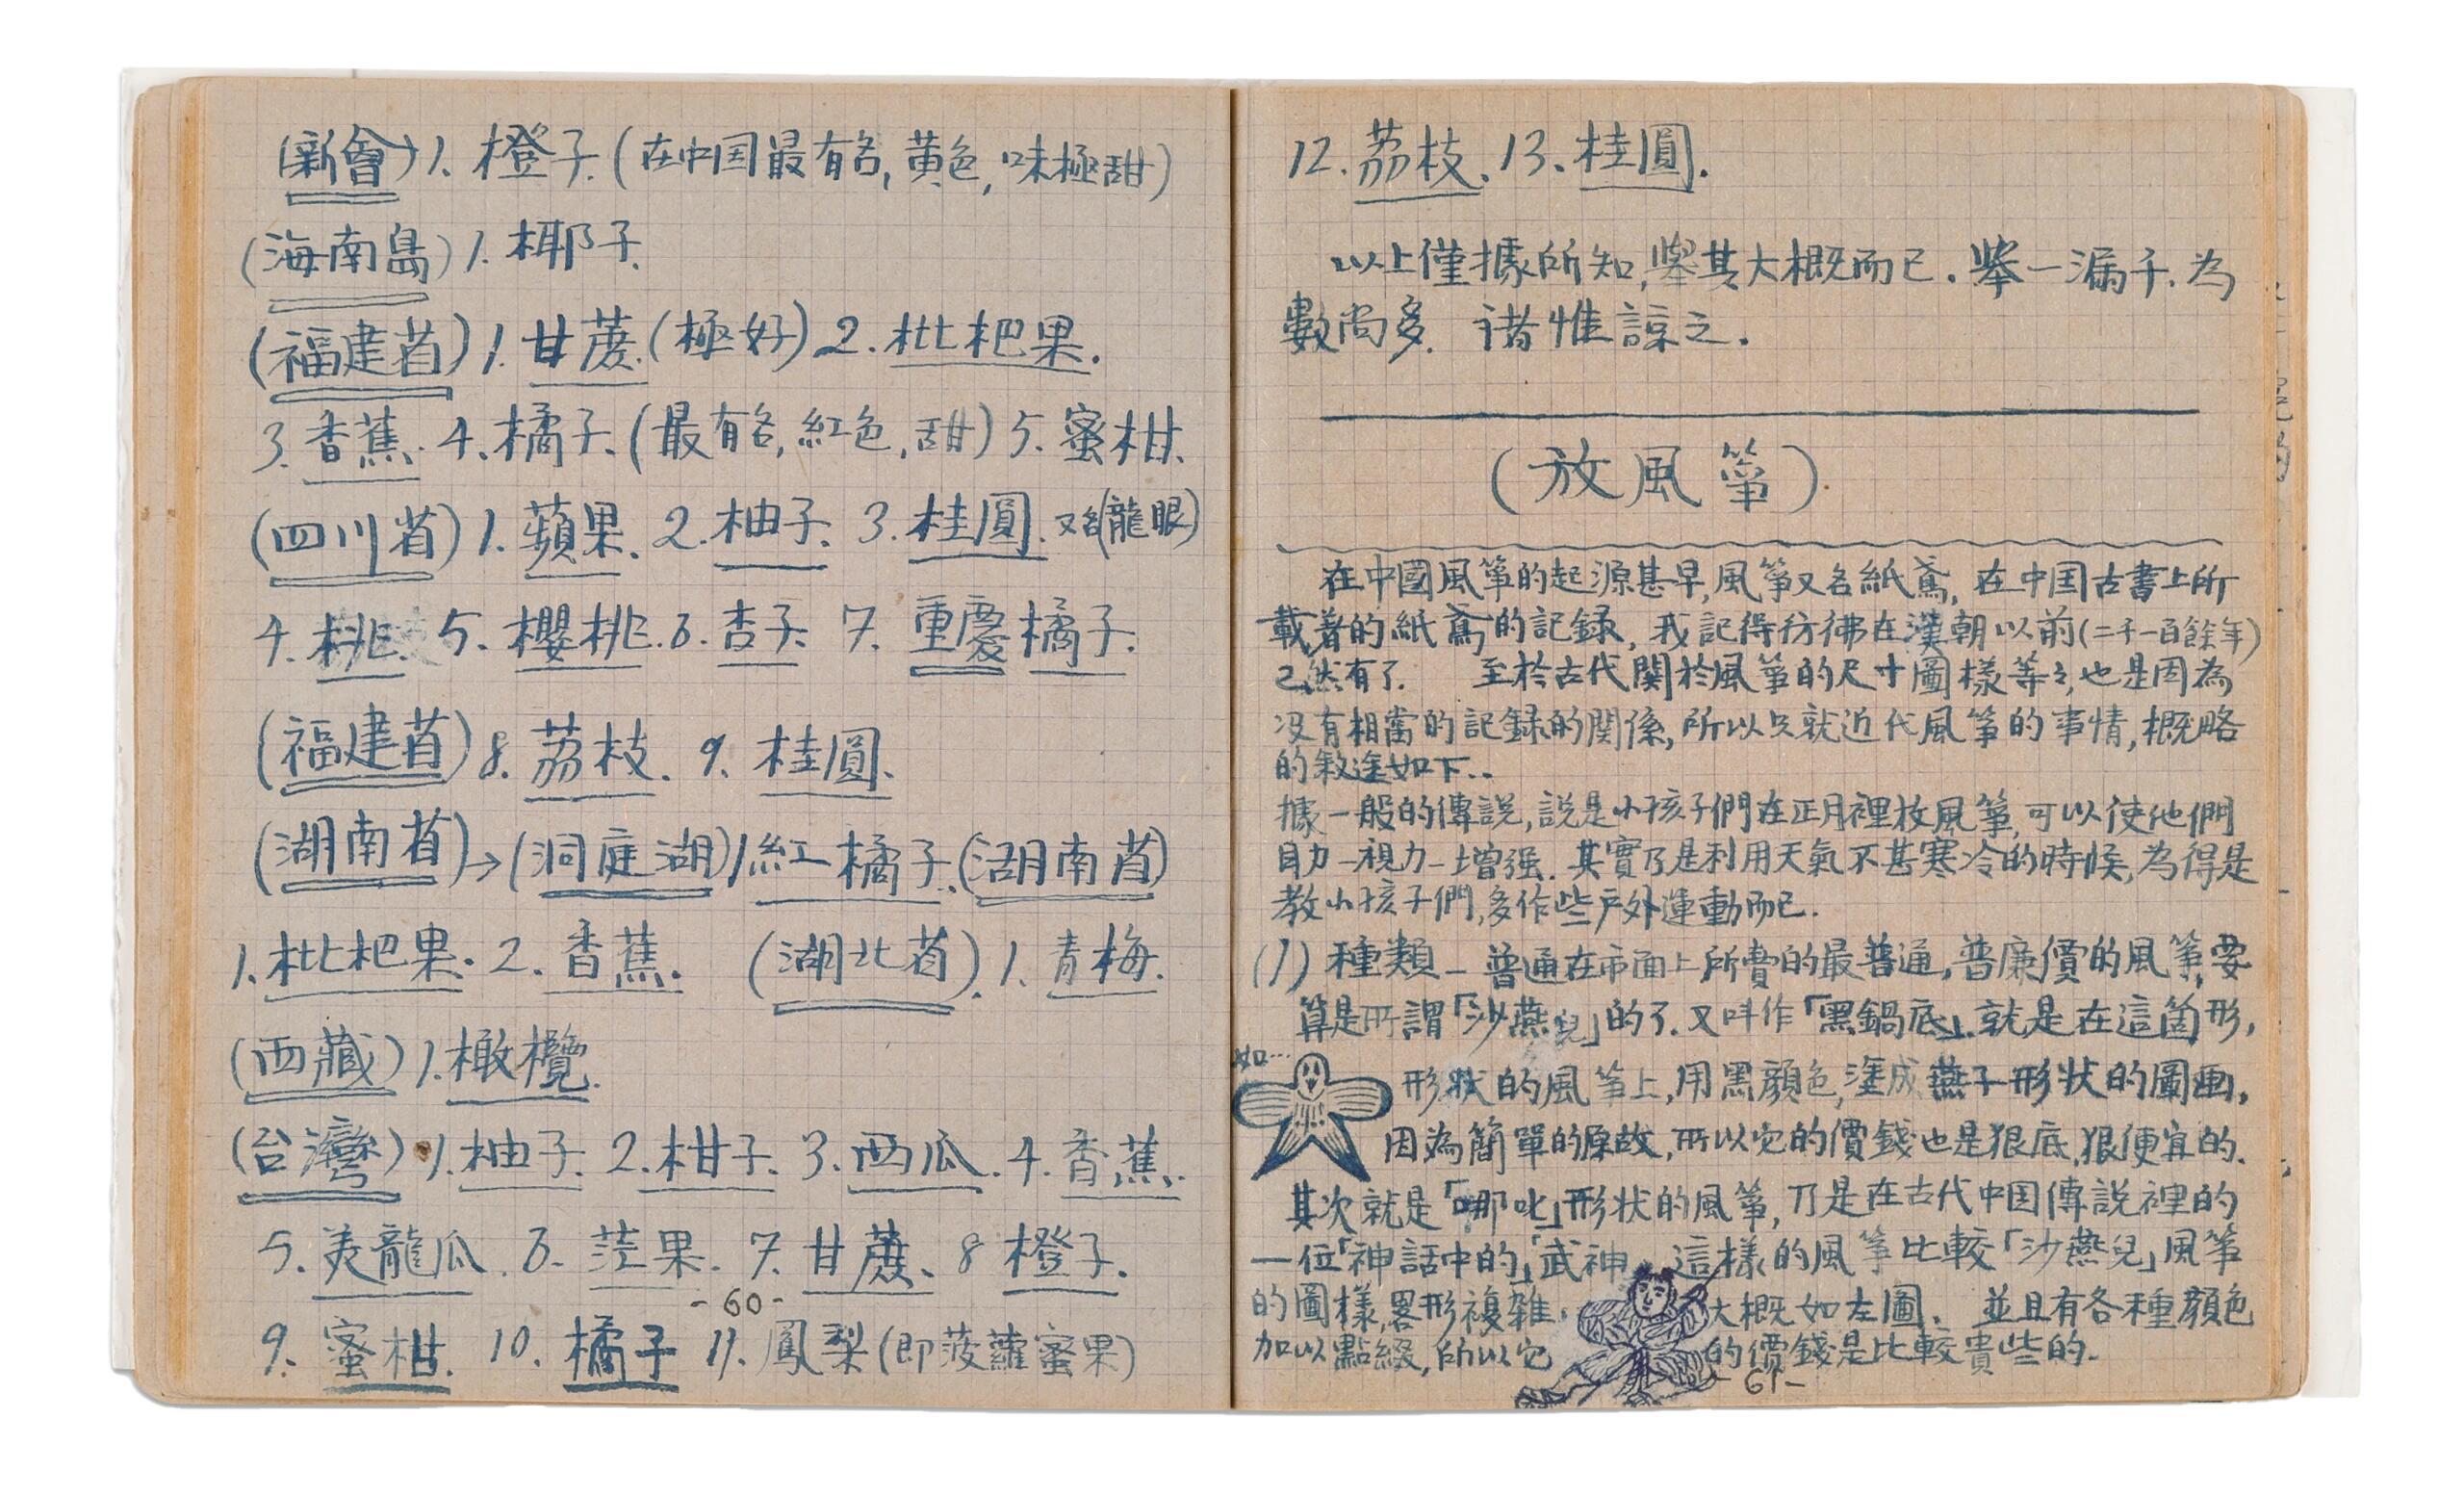 (新會) 1. 橙子. (在中国最有名, 黄色, 味極甜)
(海南島) 1. 椰子.
(福建省) 1. 甘蔗. (極好) 2. 枇杷果.
3. 香蕉. 4. 橘子. (最有名, 紅色, 甜) 5. 蜜柑.
(四川省) 1. 蘋果. 2. 柚子. 3. 桂圓. 又名(龍眼)
4. 桃. 5. 櫻桃. 6. 杏子. 7. 重慶橘子.
(福建省) 8. 荔枝. 9. 桂圓.
(湖南省)→(洞庭湖) 1. 紅橘子. (湖南省)
1. 枇杷果. 2. 香蕉. (湖北省). 1. 青梅.
(西藏) 1. 橄欖.
(台灣) 1. 柚子. 2. 柑子. 3. 西瓜. 4. 香蕉.
5. 美龍瓜. 6. 茫果. 7. 甘蔗. 8 橙子.
-60-
9. 蜜柑. 10. 橘子 11. 鳳梨(即菠蘿蜜果)
12. 荔枝. 13. 桂圓.
以上僅據所知, 舉其大概而已. 舉一漏千. 為
數尚多. 諸惟諒之.
(放風箏).
在中國風箏的起源甚早, 風箏又名紙鳶, 在中国古書上所
載着的紙鳶的記録, 我記得彷彿在漢朝以前(二千一百餘年)
已然有了. 至於古代関於風箏的尺寸圖樣等々, 也是因為
没有相當的記録的關係, 所以只就近代風箏的事情, 概略
的敘述如下..
據一般的傳説, 説是小孩子們在正月裡放風箏, 可以使他們
目力-視力-增强. 其實乃是利用天氣不甚寒冷的時候, 為得是
教小孩子們, 多作些户外運動而已.
(1) 種類 - 普通在市面上所賣的最普通, 普廉價的風箏, 要
算是所謂「沙燕兒」的了. 又叫作「黑鍋底」. 就是在這箇形,
如…
形狀的風箏上, 用黑顔色, 塗成燕子形状的圖画,
因為簡單的原故, 所以它的價錢也是狠底, 狠便宜的.
其次就是「哪叱」形状的風箏, 乃是在古代中国傳説裡的
一位「神話中的」武神. 這樣的風箏比較「沙燕兒」風箏
的圖樣, 畧形複雜. 大概如左圖. 並且有各種顔色
加以點綴, 所以它 的價錢是比較貴些的.
-61-